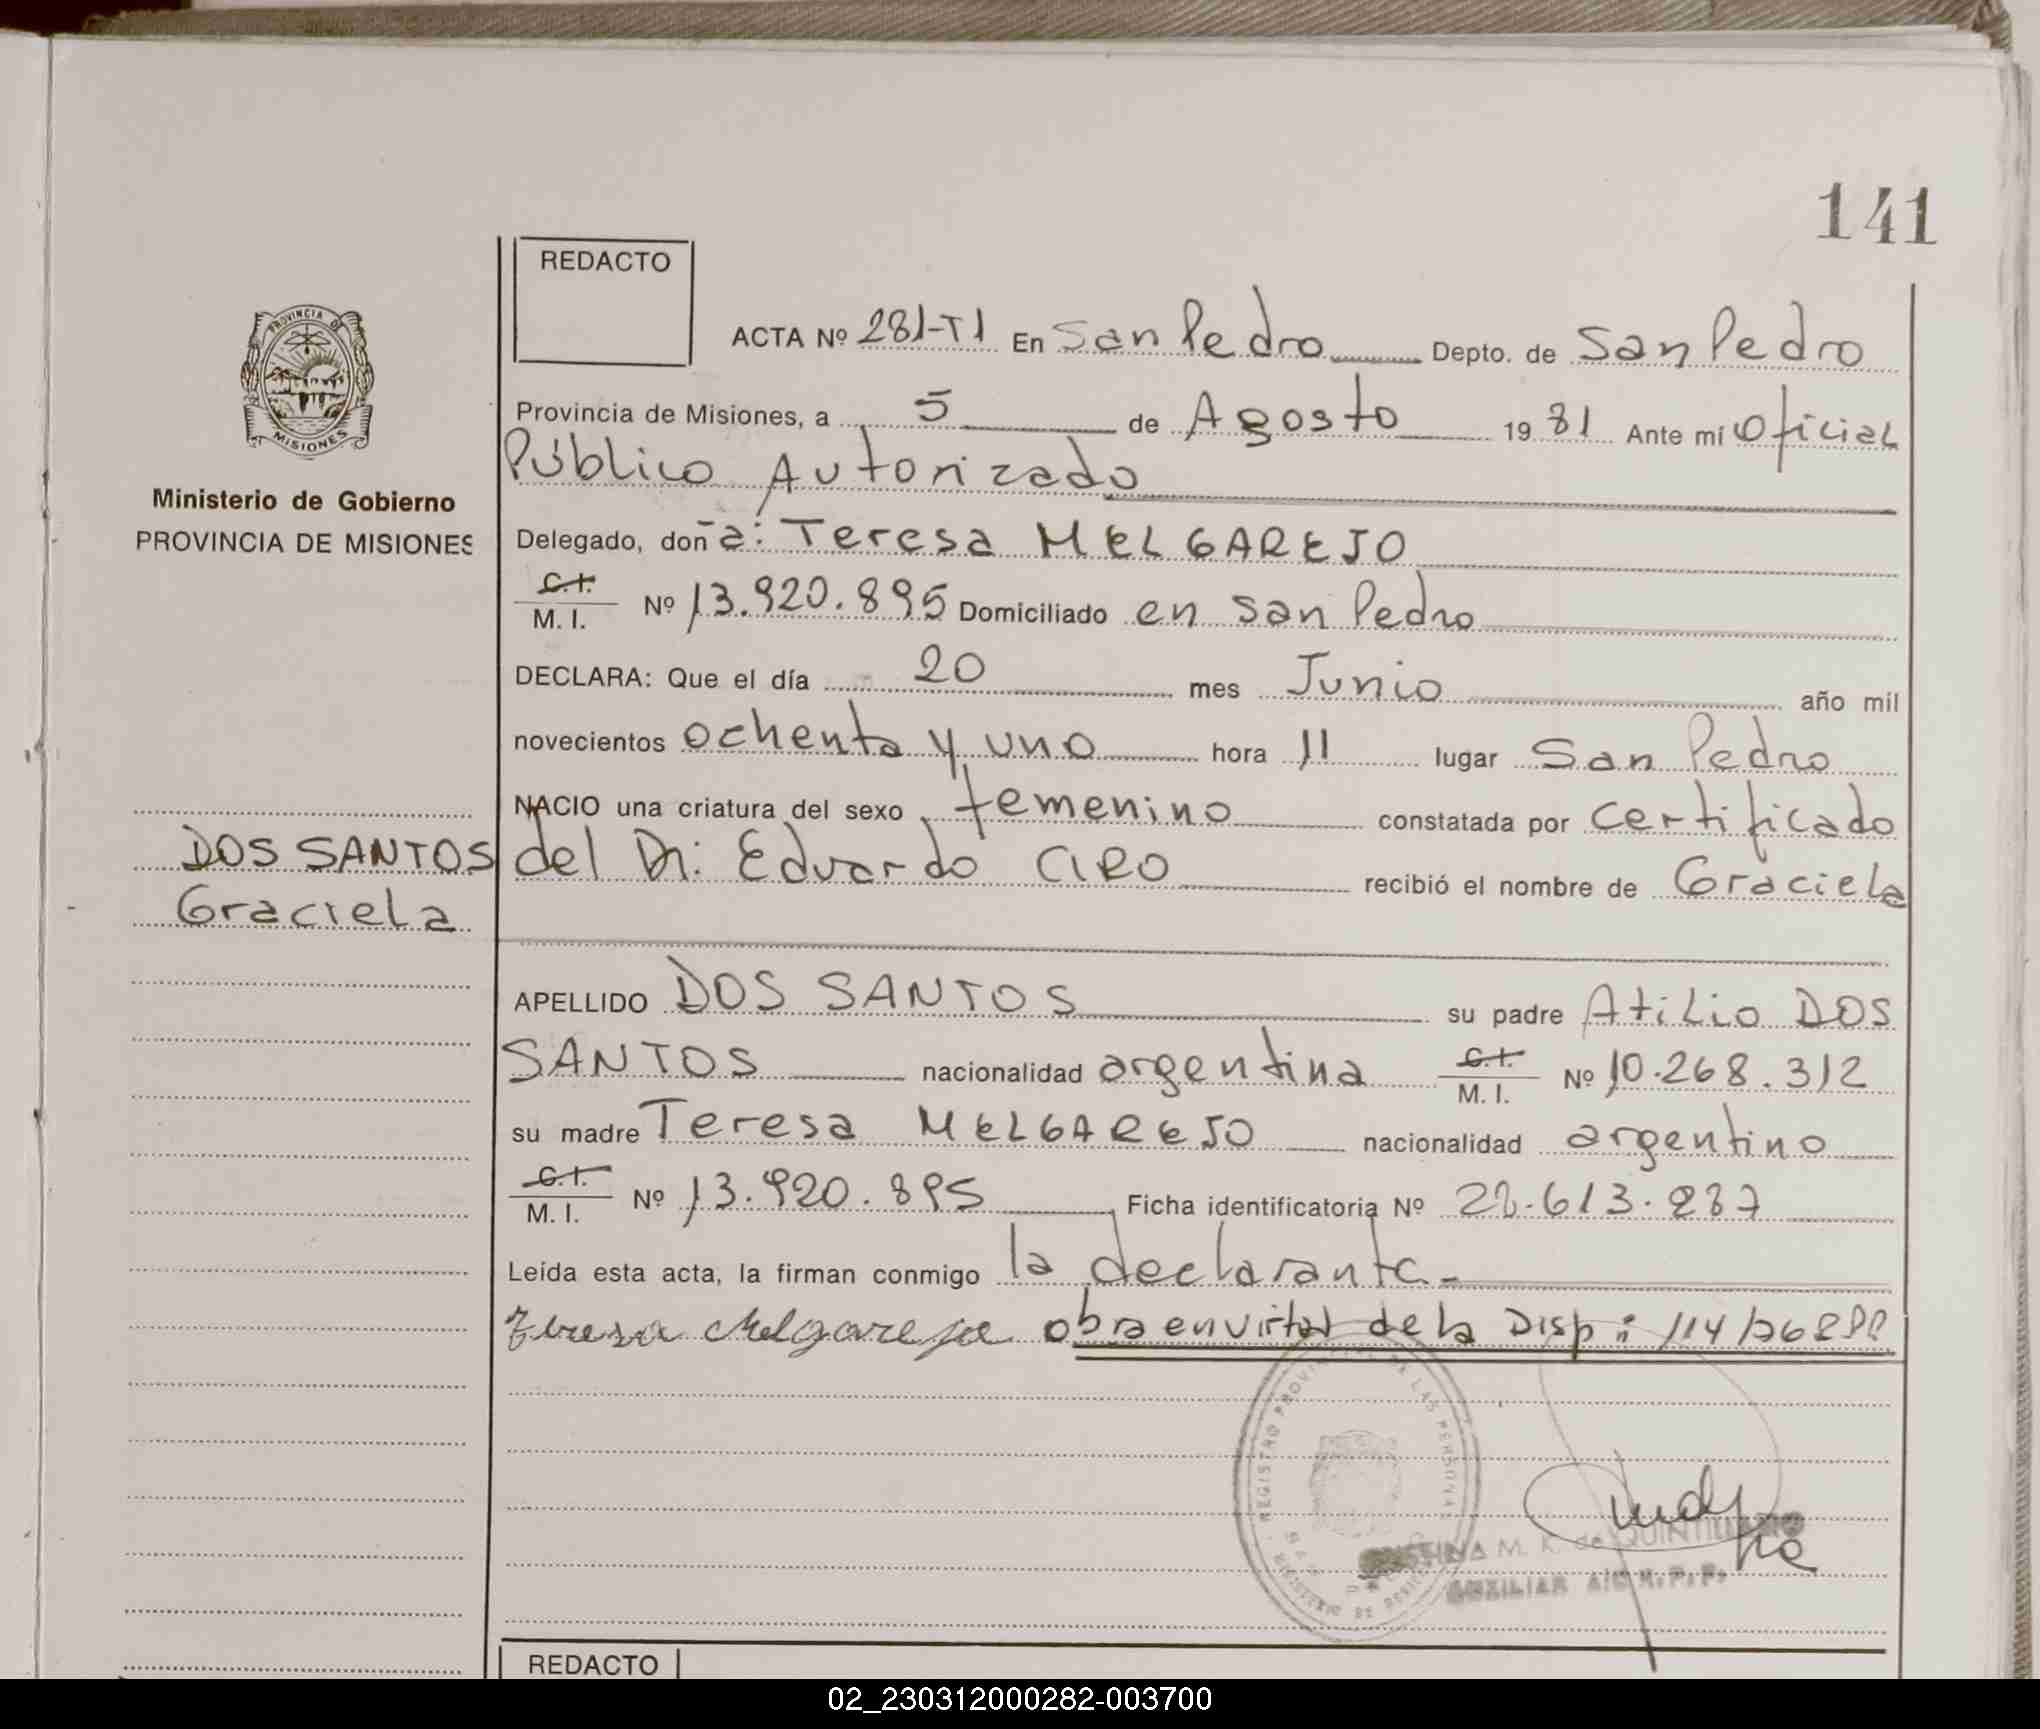 141
REDACTO
ACTA Nº 281-T1 En San Pedro Depto. de San Pedro
PROVINCIA DE
MISIONES
Provincia de Misiones, a 5 de Agosto 1981 Ante mí Oficial
Público Autorizado
Ministerio de Gobierno
PROVINCIA DE MISIONES
Delegado, doña: Teresa MELGAREJO
C.I.
M. I. Nº 13.920.895 Domiciliado en San Pedro
DECLARA: Que el día 20 mes Junio año mil
novecientos ochenta y uno hora 11 lugar San Pedro
NACIO una criatura del sexo femenino constatada por certificado
DOS SANTOS
Graciela
del Dr. Eduardo CIRO recibió el nombre de Graciela
APELLIDO DOS SANTOS su padre Atilio DOS
SANTOS nacionalidad argentina C.I. M. I. Nº 10.268.312
su madre Teresa MELGAREJO nacionalidad argentino
C.I.
M. I. Nº 13.920.895 Ficha identificatoria Nº 28.613.287
Leída esta acta, la firman conmigo la declarante.-
Teresa Melgarejo obra en virtud de la Disp: 114/76
REGISTRO PROVINCIAL DE LAS PERSONAS
M. K. de QUINTILIANO
AUXILIAR A/C R.P.P.
REDACTO
02_230312000282-003700